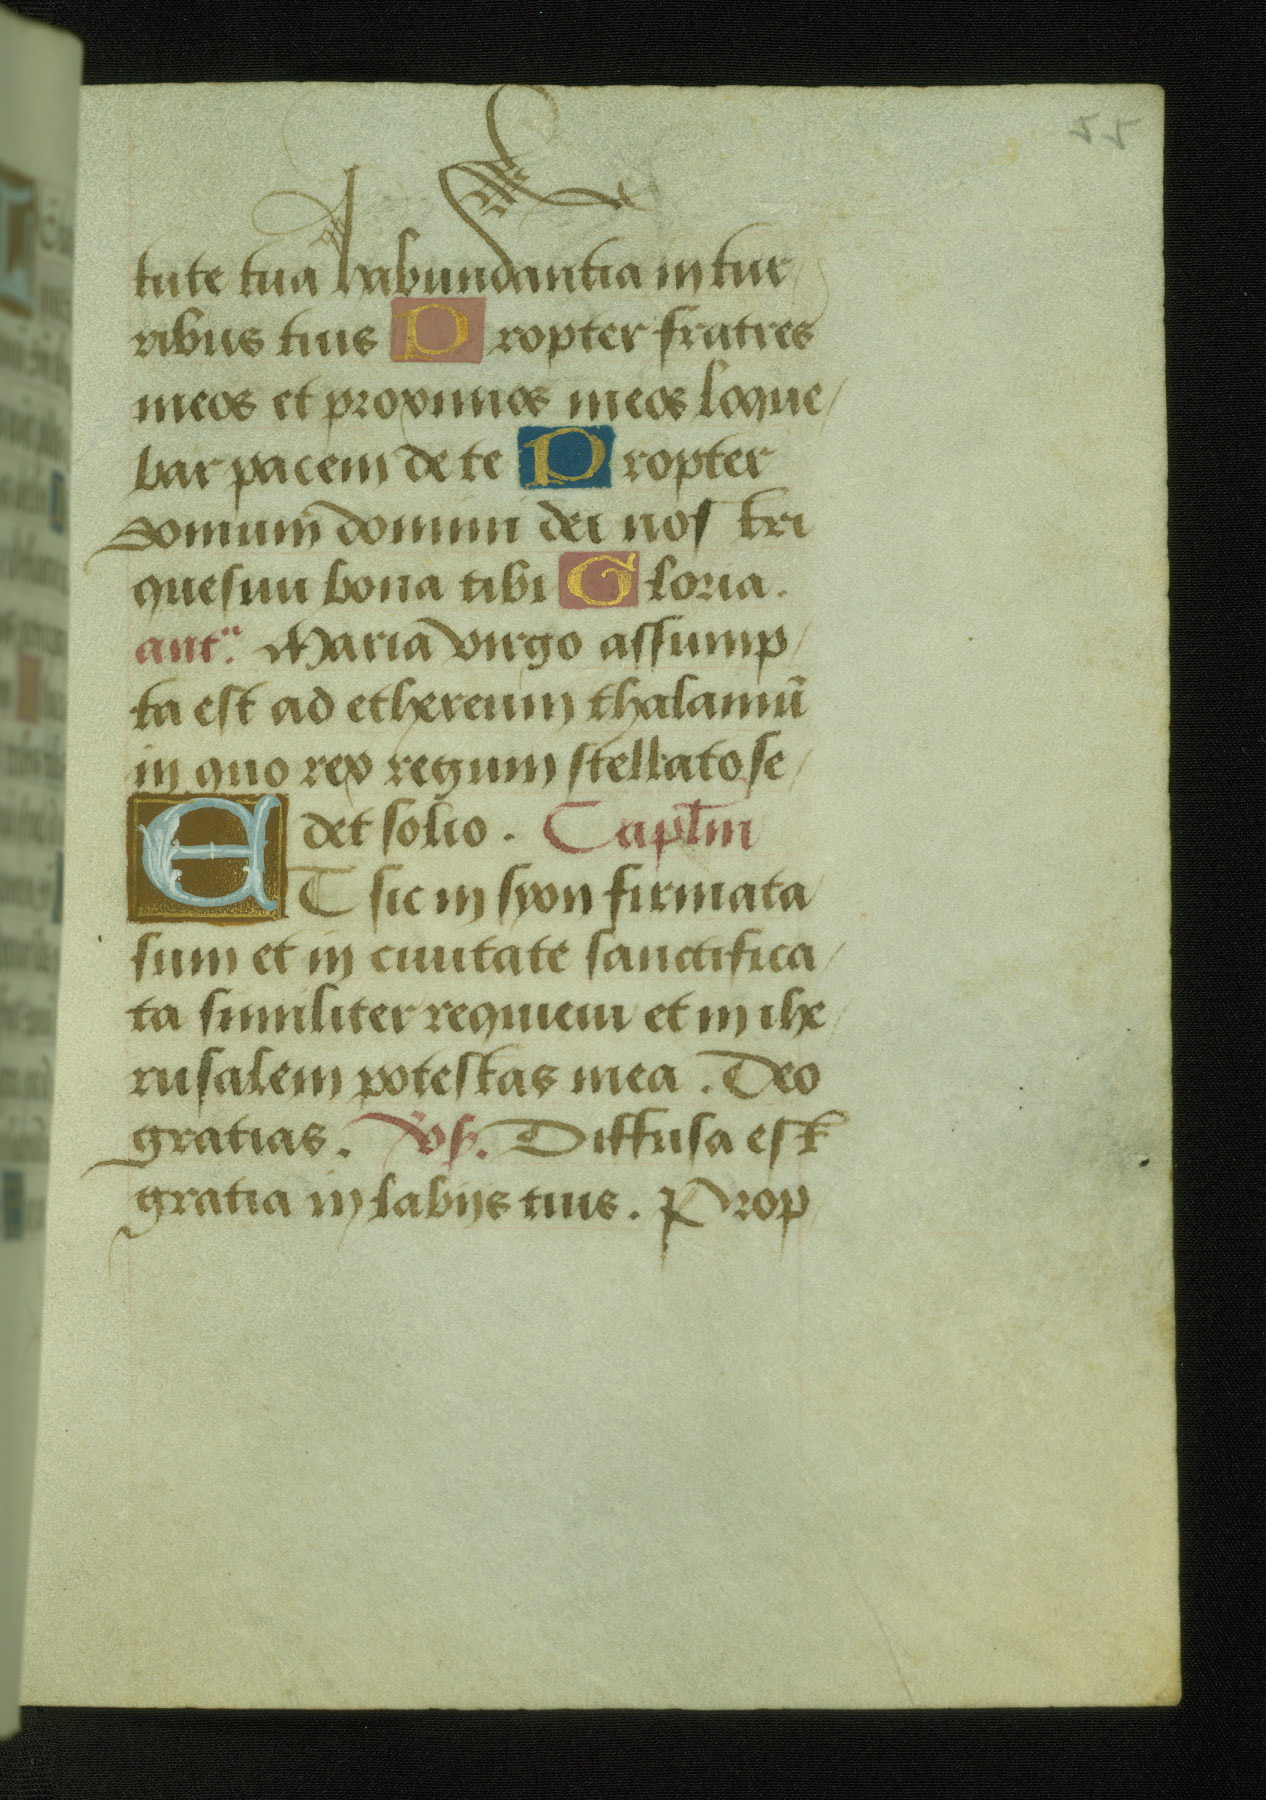 55
tute tua habundantia in tur
ribus tuis Propter fratres
meos et proximos meos loque
bar pacem de te Propter
domum domini dei nostri
quesiui bona tibi Gloria.
antª. Maria virgo assump
ta est ad ethereum thalamū
in quo rex regum stellato se
det solio. Capl̄m
ET sic in syon firmata
sum et in ciuitate sanctifica
ta similiter requieui et in ihe
rusalem potestas mea. Deo
gratias. vs. Diffusa est
gratia in labijs tuis. Prop